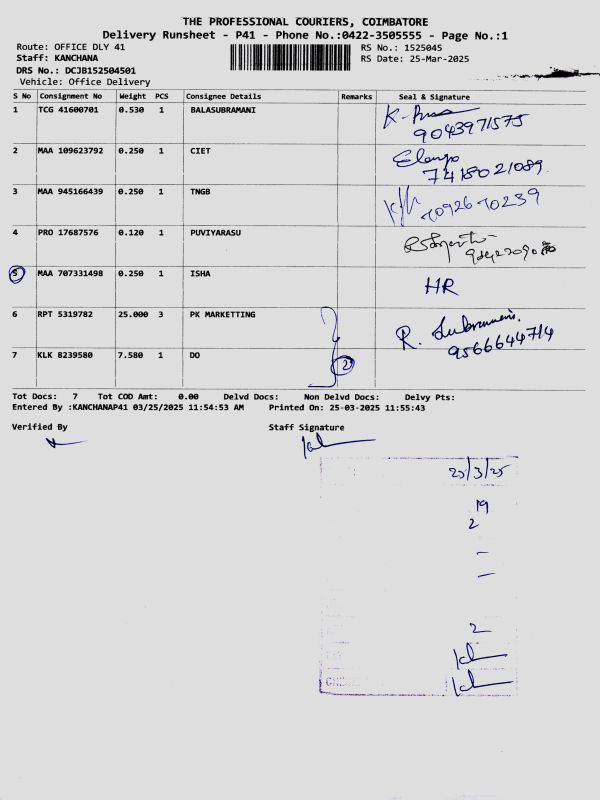 THE PROFESSIONAL COURIERS, COIMBATORE
Delivery Runsheet - P41 - Phone No.:0422-3505555 - Page No.:1
Route: OFFICE DLY 41
RS No.: 1525045
Staff: KANCHANA
RS Date: 25-Mar-2025
DRS No.: DCJB152504501
Vehicle: Office Delivery
S No Consignment No Weight PCS Consignee Details Remarks Seal & Signature
1 TCG 41600701 0.530 1 BALASUBRAMANI
9043971575
2 MAA 109623792 0.250 1 CIET Elango
7418021089
3 MAA 945166439 0.250 1 TNGB
7092670239
4 PRO 17687576 0.120 1 PUVIYARASU
5 MAA 707331498 0.250 1 ISHA HR
6 RPT 5319782 25.000 3 PK MARKETTING
R.
9566644714
7 KLK 8239580 7.580 1 DO 2
Tot Docs: 7 Tot COD Amt: 0.00 Delvd Docs: Non Delvd Docs: Delvy Pts:
Entered By :KANCHANAP41 03/25/2025 11:54:53 AM Printed On: 25-03-2025 11:55:43
Verified By Staff Signature
25/3/25
19
2
-
-
2